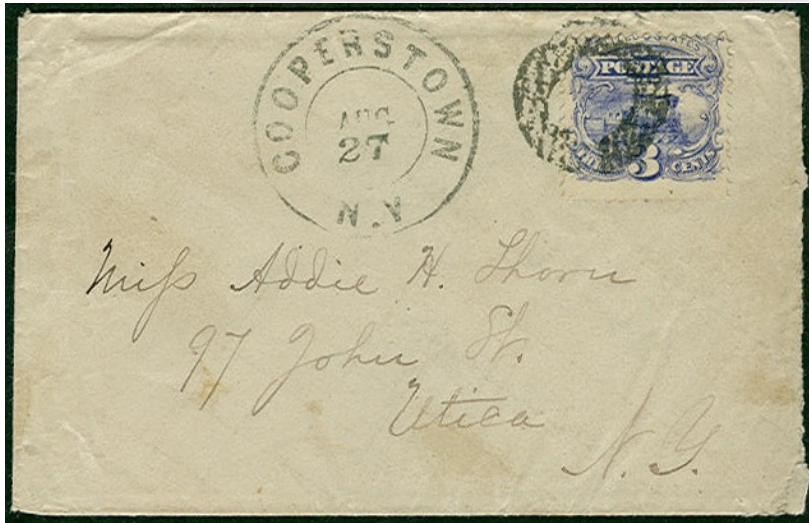 COOPERSTOWN
AUG
27
N.Y
UNITED STATES
POSTAGE
3
CENTS
Miss Addie H. Thorn
97 John St.
Utica
N.Y.